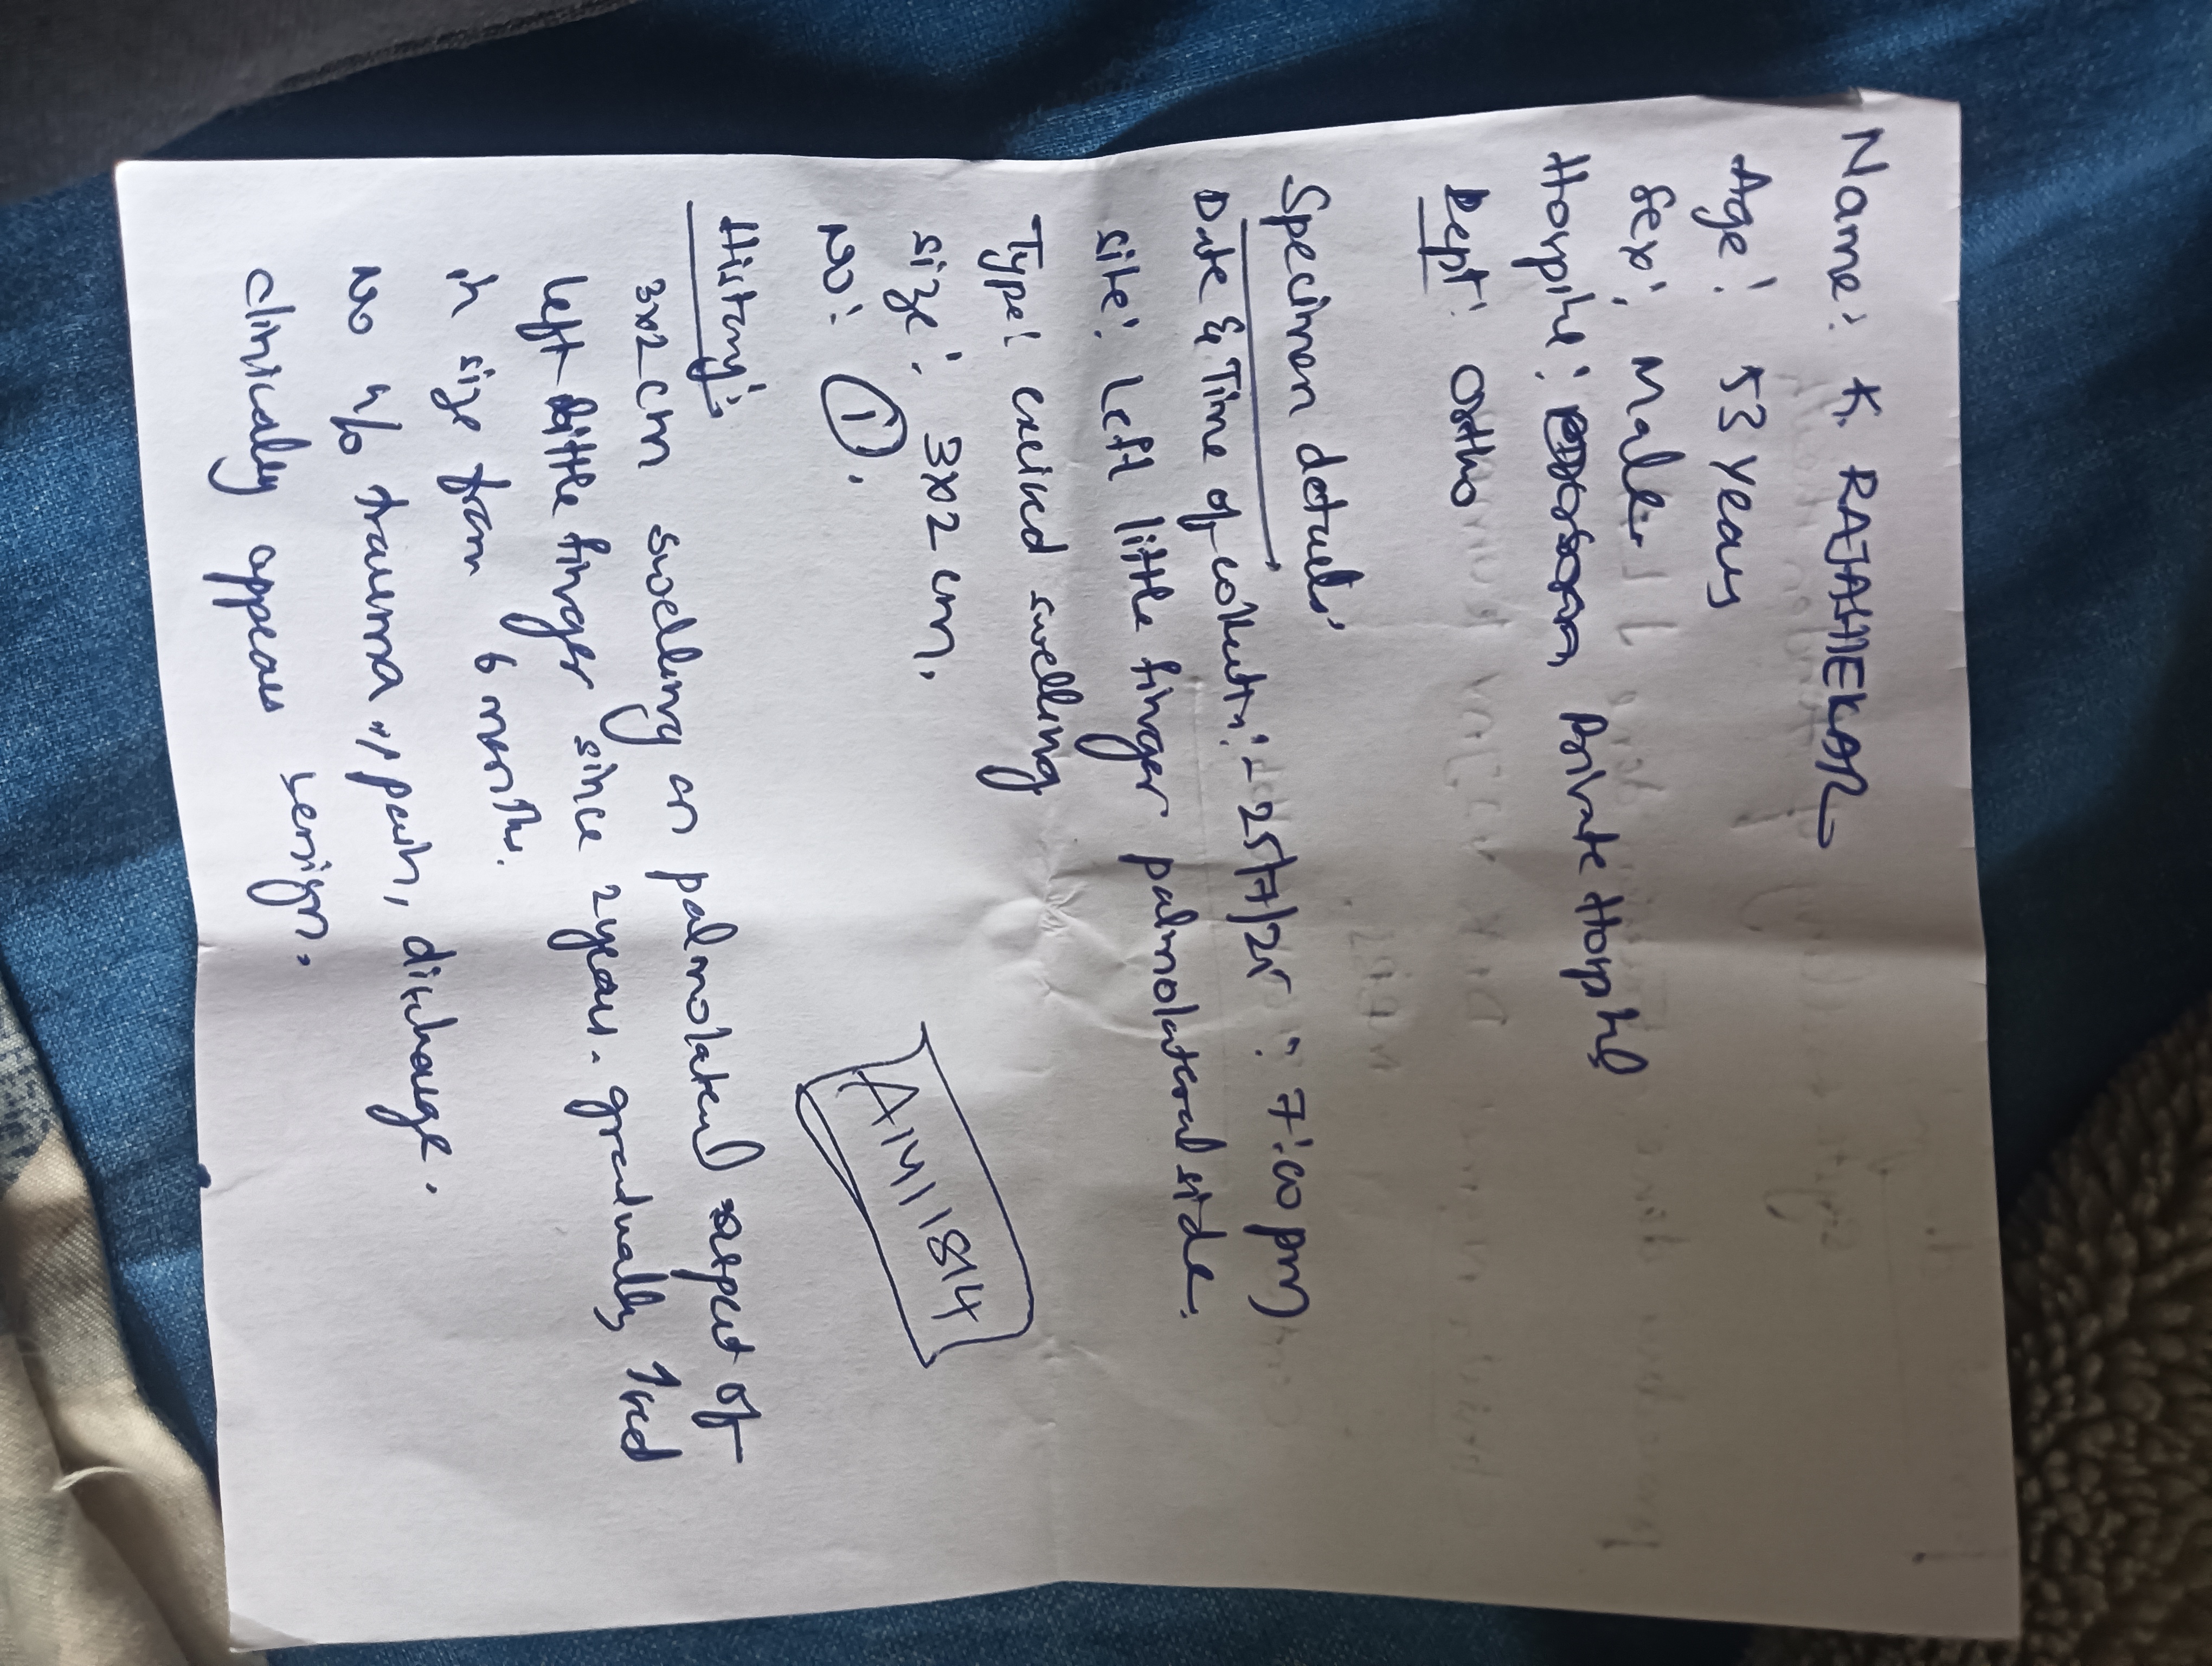 Name: K. RAJAHEKAR
Age: 53 years
Sex: Male
Hospital: Private Hospital
Dept: Ortho
Specimen details
Date & Time of collectn:- 25/7/25 : 7:00 pm
site: Left little finger palmolateral side.
Type: excised swelling
size: 3x2 cm.
No: 1.
AM1814
History:
3x2 cm swelling on palmolateral aspect of
left little finger since 2 years. gradually ↑sed
in size from 6 months.
No h/o trauma, pain, discharge.
clinically appears benign.